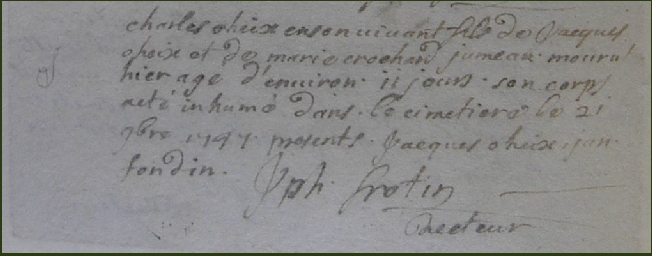 charles oheix en son vivant fils de Jacques
oheix et de marie crochard jumeau mourut
hier age d'environ 11 jours son corps
a eté inhumé dans le cimetiere le 21
9bre 1747 presents Jacques oheix jan
fondin.
Jph. Frotin
Recteur